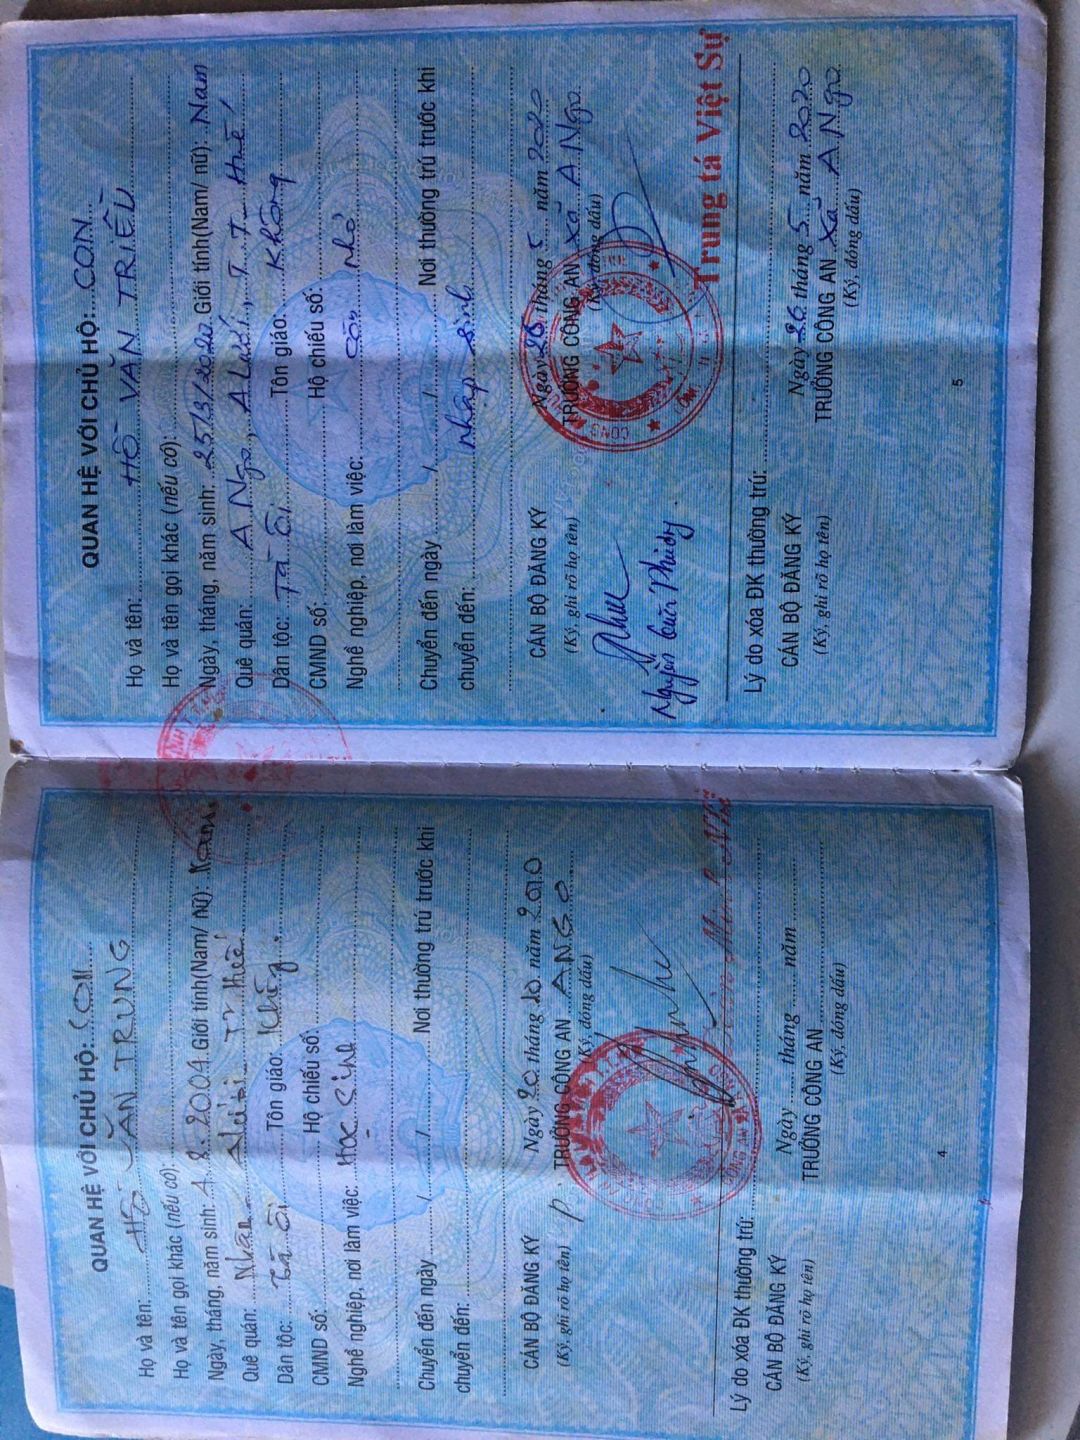 QUAN HỆ VỚI CHỦ HỘ: CON
Họ và tên: HỒ VĂN TRUNG
Họ và tên gọi khác (nếu có):
Ngày, tháng, năm sinh: 1.8.2004 Giới tính(Nam/ nữ): Nam
Quê quán: Nhâm
Dân tộc: Tà Ôi Tôn giáo: Không
CMND số: Hộ chiếu số:
Nghề nghiệp, nơi làm việc: Học Sinh
Chuyển đến ngày / / Nơi thường trú trước khi
chuyển đến:
Ngày 20 tháng 10 năm 2010
CÁN BỘ ĐĂNG KÝ P. TRƯỞNG CÔNG AN A NGO
(Ký, ghi rõ họ tên) (Ký, đóng dấu)
Lý do xóa ĐK thường trú:
Ngày tháng năm
CÁN BỘ ĐĂNG KÝ TRƯỞNG CÔNG AN
(Ký, ghi rõ họ tên) (Ký, đóng dấu)
4
QUAN HỆ VỚI CHỦ HỘ: CON
Họ và tên: HỒ VĂN TRIỀU
Họ và tên gọi khác (nếu có):
Ngày, tháng, năm sinh: 25/3/2020 Giới tính(Nam/ nữ): Nam
Quê quán: A Ngo, A Lưới, T.T. Huế
Dân tộc: Tà Ôi Tôn giáo: Không
CMND số: Hộ chiếu số:
Nghề nghiệp, nơi làm việc: Còn nhỏ
Chuyển đến ngày / / Nơi thường trú trước khi
chuyển đến: Nhập sinh
Ngày 26 tháng 5 năm 2020
CÁN BỘ ĐĂNG KÝ TRƯỞNG CÔNG AN Xã A Ngo
(Ký, ghi rõ họ tên) (Ký, đóng dấu)
Nguyễn
Trung tá Việt Sự
Lý do xóa ĐK thường trú:
Ngày 26 tháng 5 năm 2020
CÁN BỘ ĐĂNG KÝ TRƯỞNG CÔNG AN Xã A Ngo
(Ký, ghi rõ họ tên) (Ký, đóng dấu)
5